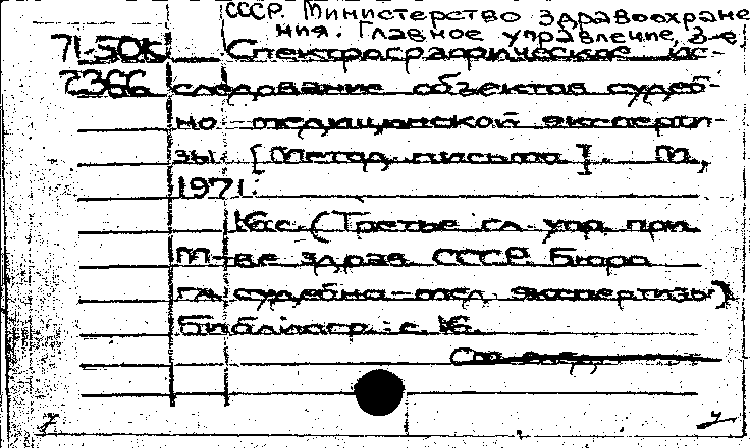 СССР. Министерство здравоохране-
ния. Главное управление, 3-е.
71-50К Спектрографическое ис-
2366 следование объектов судеб-
но-медицинской эксперти-
зы. [Метод. письмо]. М.,
1971.
16 с. (Третье гл. упр. при
М-ве здрав. СССР. Бюро
гл. судебно-мед. экспертизы)
Библиогр.: с. 16.